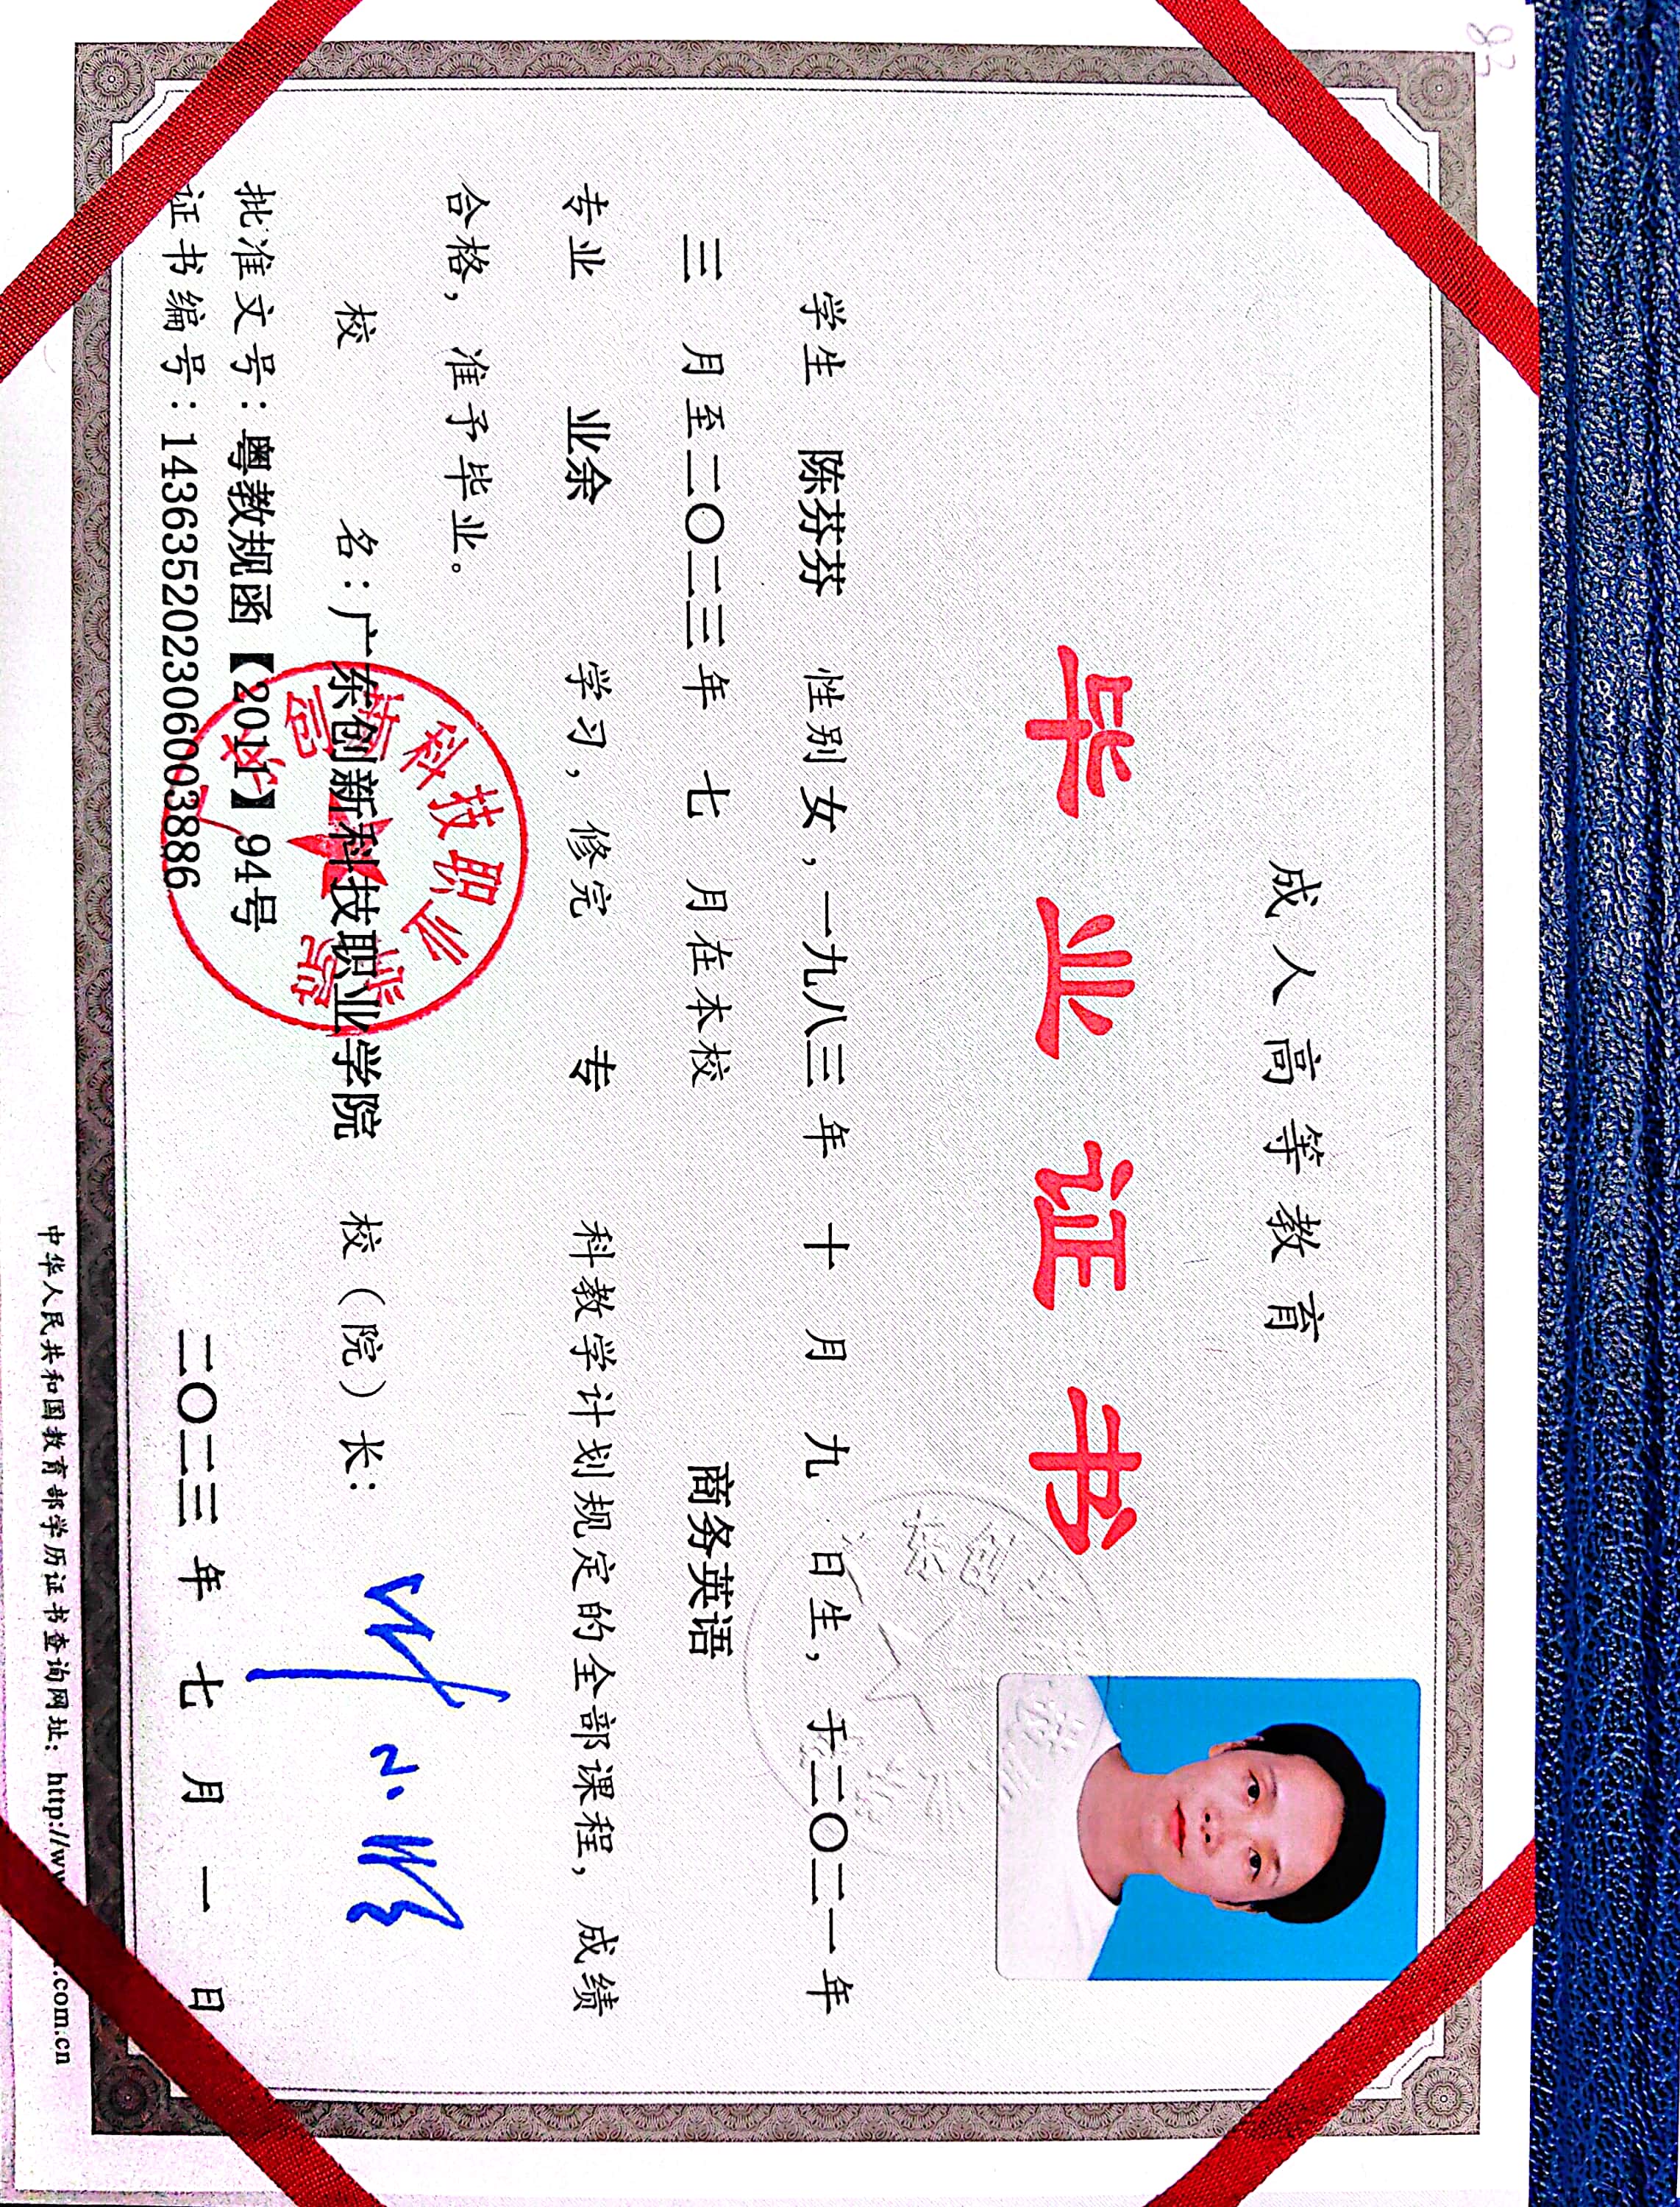 成人高等教育
毕业证书
学生 陈芬芬 性别女，一九八三年 十 月 九 日生，于二〇二一年
三 月至二〇二三年 七 月在本校 商务英语
专业 业余 学习，修完 专 科教学计划规定的全部课程，成绩
合格，准予毕业。
校 名：广东创新科技职业学院 校（院）长：
批准文号：粤教规函【2011】94号
证书编号：143635202306003886
二〇二三 年 七 月 一 日
中华人民共和国教育部学历证书查询网址：http://ww .com.cn
科技职业
83